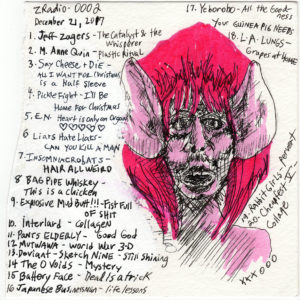 ZRadio - 0002
December 21, 2017
1. Jeff Zagers - The Catalyst & the
Whisperer
2. M. Anne Quin - Plastic Ritual
3. Say Cheese + Die -
All I Want for Christmas
is a Half Sleeve
4. Pickle Fight - I'll Be
Home For Christmas
5. E.N. Heart is only an Organ
6. Liars Hate Liars -
Can you kill a man
7. Insomniacrobats -
Hair all weird
8 Bagpipe Whiskey -
This is a chicken
9. Explosive Mud Butt!!! - Fist Full
of shit
10. Interlard - Collagen
11. Pants Elderly - Good God
12 Mutwawa - World War 3-D
13. Doviant - Sketch Nine - Still Shining
14 The O Voids - Mystery
15 Battery Face - Dead is a trick
16 Japanese Businessman - life lessons
17. Yeborobo - All the Goodness
Your guinea pig needs
18. L.A. Lungs -
Grapes at Home
19. Rabbit Girls - Pervert
20. Christ V
Collage
XXX000